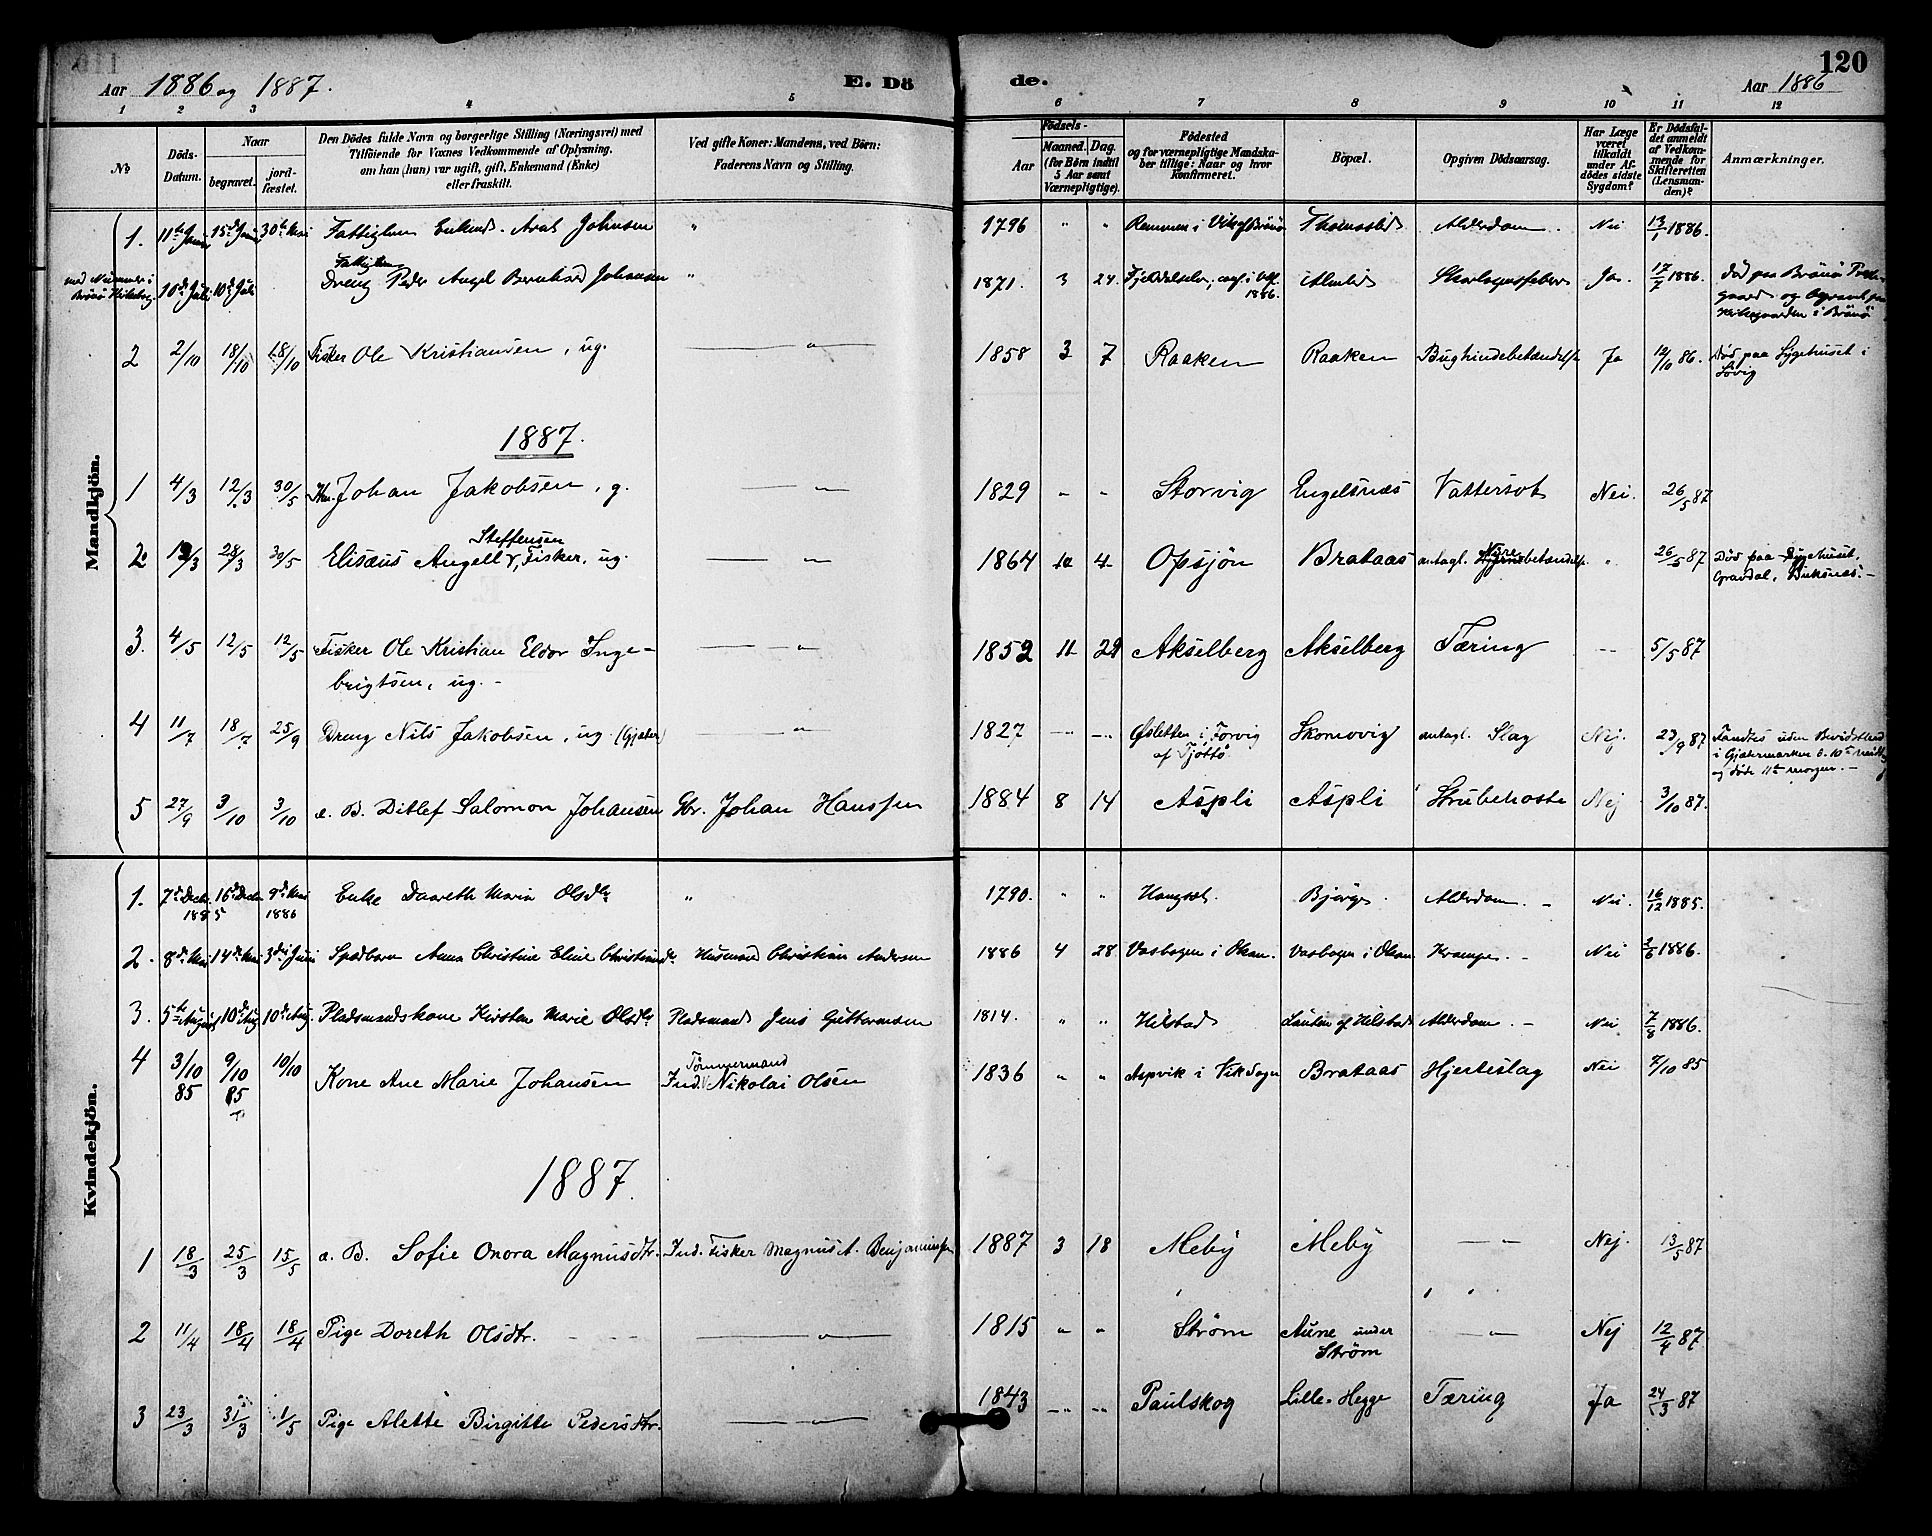 Aar 1886 og 1887.
E. Dö
de.
Aar 1886
120
1 2 3 4 5 6 7 8 9 10 11 12
No
Döds-Datum.
Naar
begravet.
jordfæstet.
Den Dödes fulde Navn og borgerlige Stilling (Næringsvei) med
Tilföiende for Voxnes Vedkommende af Oplysning,
om han (hun) var ugift, gift, Enkemand (Enke)
eller fraskilt.
Ved gifte Koner: Mandens, ved Börn:
Faderens Navn og Stilling.
Födsels-
Aar
Maaned. Dag.
(for Börn indtil
5 Aar samt
Værnepligtige).
Födested
og for værnepligtige Mandska-
ber tillige: Naar og hvor
konfirmeret.
Bopæl.
Opgiven Dödsaarsag.
Har Læge
været
tilkaldt
under Af-
dödes sidste
Sygdom?
Er Dödsfal-
det anmeldt
af Vedkom-
mende for
Skifteretten
(Lensman-
den)?
Anmærkninger.
Mandkjön.
1. 11te Juni 15de Juni 30te Mai Fattiglem Enkemd. Arat Johnsen " 1796 " " Remmen i Vik af Brönö Alderdom. Nei 13/1 1886.
10de Juli 10de Juli Fattiglem
Dreng Peder Angel Bernhard Johansen " 1871. 3 24 1886. Almlid Ja. 17/7 1886. Död paa Brönö
gaard og begravet paa
Kirkegaarden i Brönö
2 2/10 18/10 18/10 Fisker Ole Kristiansen, ug. — " — 1858 3 7 Raaken Raaken Bughindebetændelse Ja 12/10 86. Död paa Sygehuset i
Søvig
1887.
1 4/3 12/3 30/5 Johan Jakobsen, g. — " — 1829 " " Storvig Engelsnæs Vattersot Nei. 26/5 87
2 12/3 28/3 30/5 Steffensen
Elisæus Angell, Fisker, ug. — " — 1864 10 4 Opsjön Brataas antagl. Nyrebetændelse " 26/5 87 Död paa Sygehuset,
Gravdal, Buksnæs. —
3. 4/5 12/5 12/5 Fisker Ole Kristian Eldor Inge-
brigtsen, ug. — — " — 1852 11 29 Akselberg Akselberg Tæring -- 5/5 87
4 11/7 18/7 25/9 Dreng Nils Jakobsen, ug (Gjæter) — " — 1827 -"- -"- Øsletten i Forvig
af Tjøttø Skomovig antagl. Slag Nej. 23/9 87 Fandtes uden Bevidsthed
i Gjætermarken 6. 10de
og døde 11te morgen. —
5 27/9 3/10 3/10 e. B. Ditlef Salomon Johansen Gbr. Johan Hanssen 1884 8 14 Aspli Aspli Strubehoste Nej 3/10 87.
Kvindekjön.
1. 7de Decbr. 16de Decbr. 9de Mai
1885 1886 Enke Daareth Maria Olsdtr " 1790. " " Hangset. Bjørge. Alderdom. — Nei. 16/12 1885.
2. 8de Mai 14de Mai 3die Juni Spædbarn Anna Christine Eline Christiansdtr. Husmand Christian Andersen 1886 4 28 Vasbogen i Okan. Vasbogen i Okan. Krampe. — Nei 2/6 1886.
3. 5te August 10de Aug. 10de Aug. Pladsmandskone Kirsten Marie Olsdtr Pladsmand Jens Guttormsen 1814. " " Hilstad Lauten af Hilstad Alderdom. — Nei 7/8 1886.
4 3/10 85 9/10 85 10/10 Kone Ane Marie Johansen Tömmermand
Ind. Nikolai Olsen 1836 " " Aspvik i Vik Sogn Brataas Hjerteslag Nei 7/10 85
1887.
1 18/3 25/3 15/5 e. B. Sofie Onora Magnusdtr. Ind. Fisker Magnus A. Benjaminsen 1887 3 18 Meby Meby — " — Nej. 13/5 87
2 11/4 18/4 18/4 Pige Doreth Olsdtr. — " — 1815 " " Strøm Aune under
Strøm — " — Nej 12/4 87
3 23/3 31/3 1/5 Pige Alette Birgitte Pedersdtr. — " — 1843 -"- -"- Paulskog Lille-Hegge Tæring Ja 24/3 87